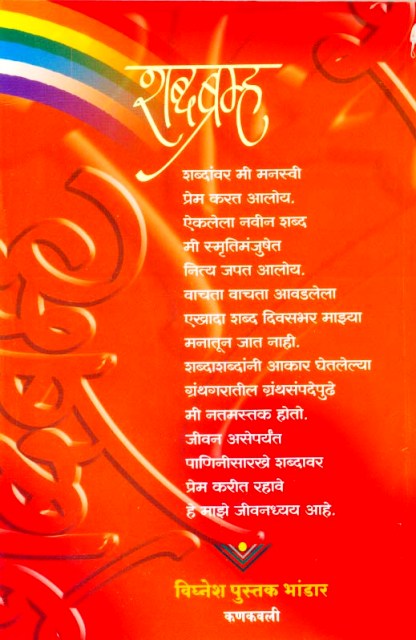 शब्दब्रम्ह
शब्दांवर मी मनस्वी
प्रेम करत आलोय.
ऐकलेला नवीन शब्द
मी स्मृतिमंजुषेत
नित्य जपत आलोय.
वाचता वाचता आवडलेला
एखादा शब्द दिवसभर माझ्या
मनातून जात नाही.
शब्दाशब्दांनी आकार घेतलेल्या
ग्रंथगरातील ग्रंथसंपदेपुढे
मी नतमस्तक होतो.
जीवन असेपर्यंत
पाणिनीसारखे शब्दावर
प्रेम करीत रहावे
हे माझे जीवनध्यय आहे.
विघ्नेश पुस्तक भांडार
कणकवली